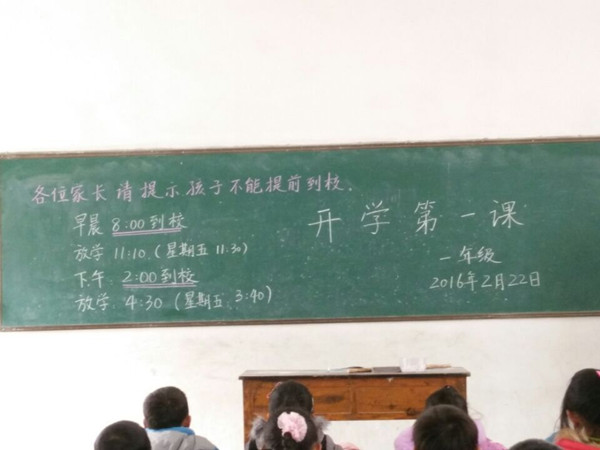 各位家长请提示孩子不能提前到校.
早晨 8:00到校
放学 11:10 (星期五 11:30)
下午 2:00到校
放学 4:30 (星期五 3:40)
开学第一课
一年级
2016年2月22日